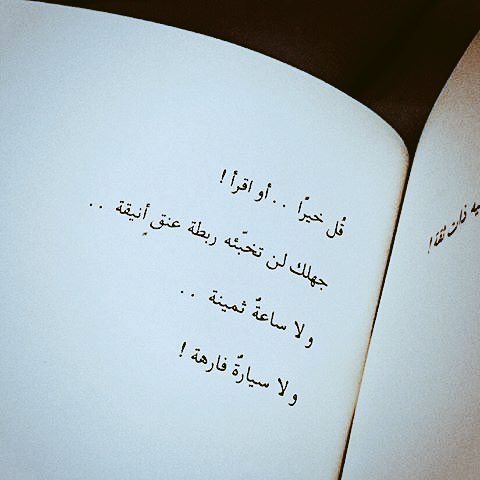 قُل خيرًا . . أو اقرأ !
جهلك لن تخبّئه ربطة عنق أنيقة . .
ولا ساعةٌ ثمينة . .
ولا سيارةٌ فارهة !
ذات ثقة !